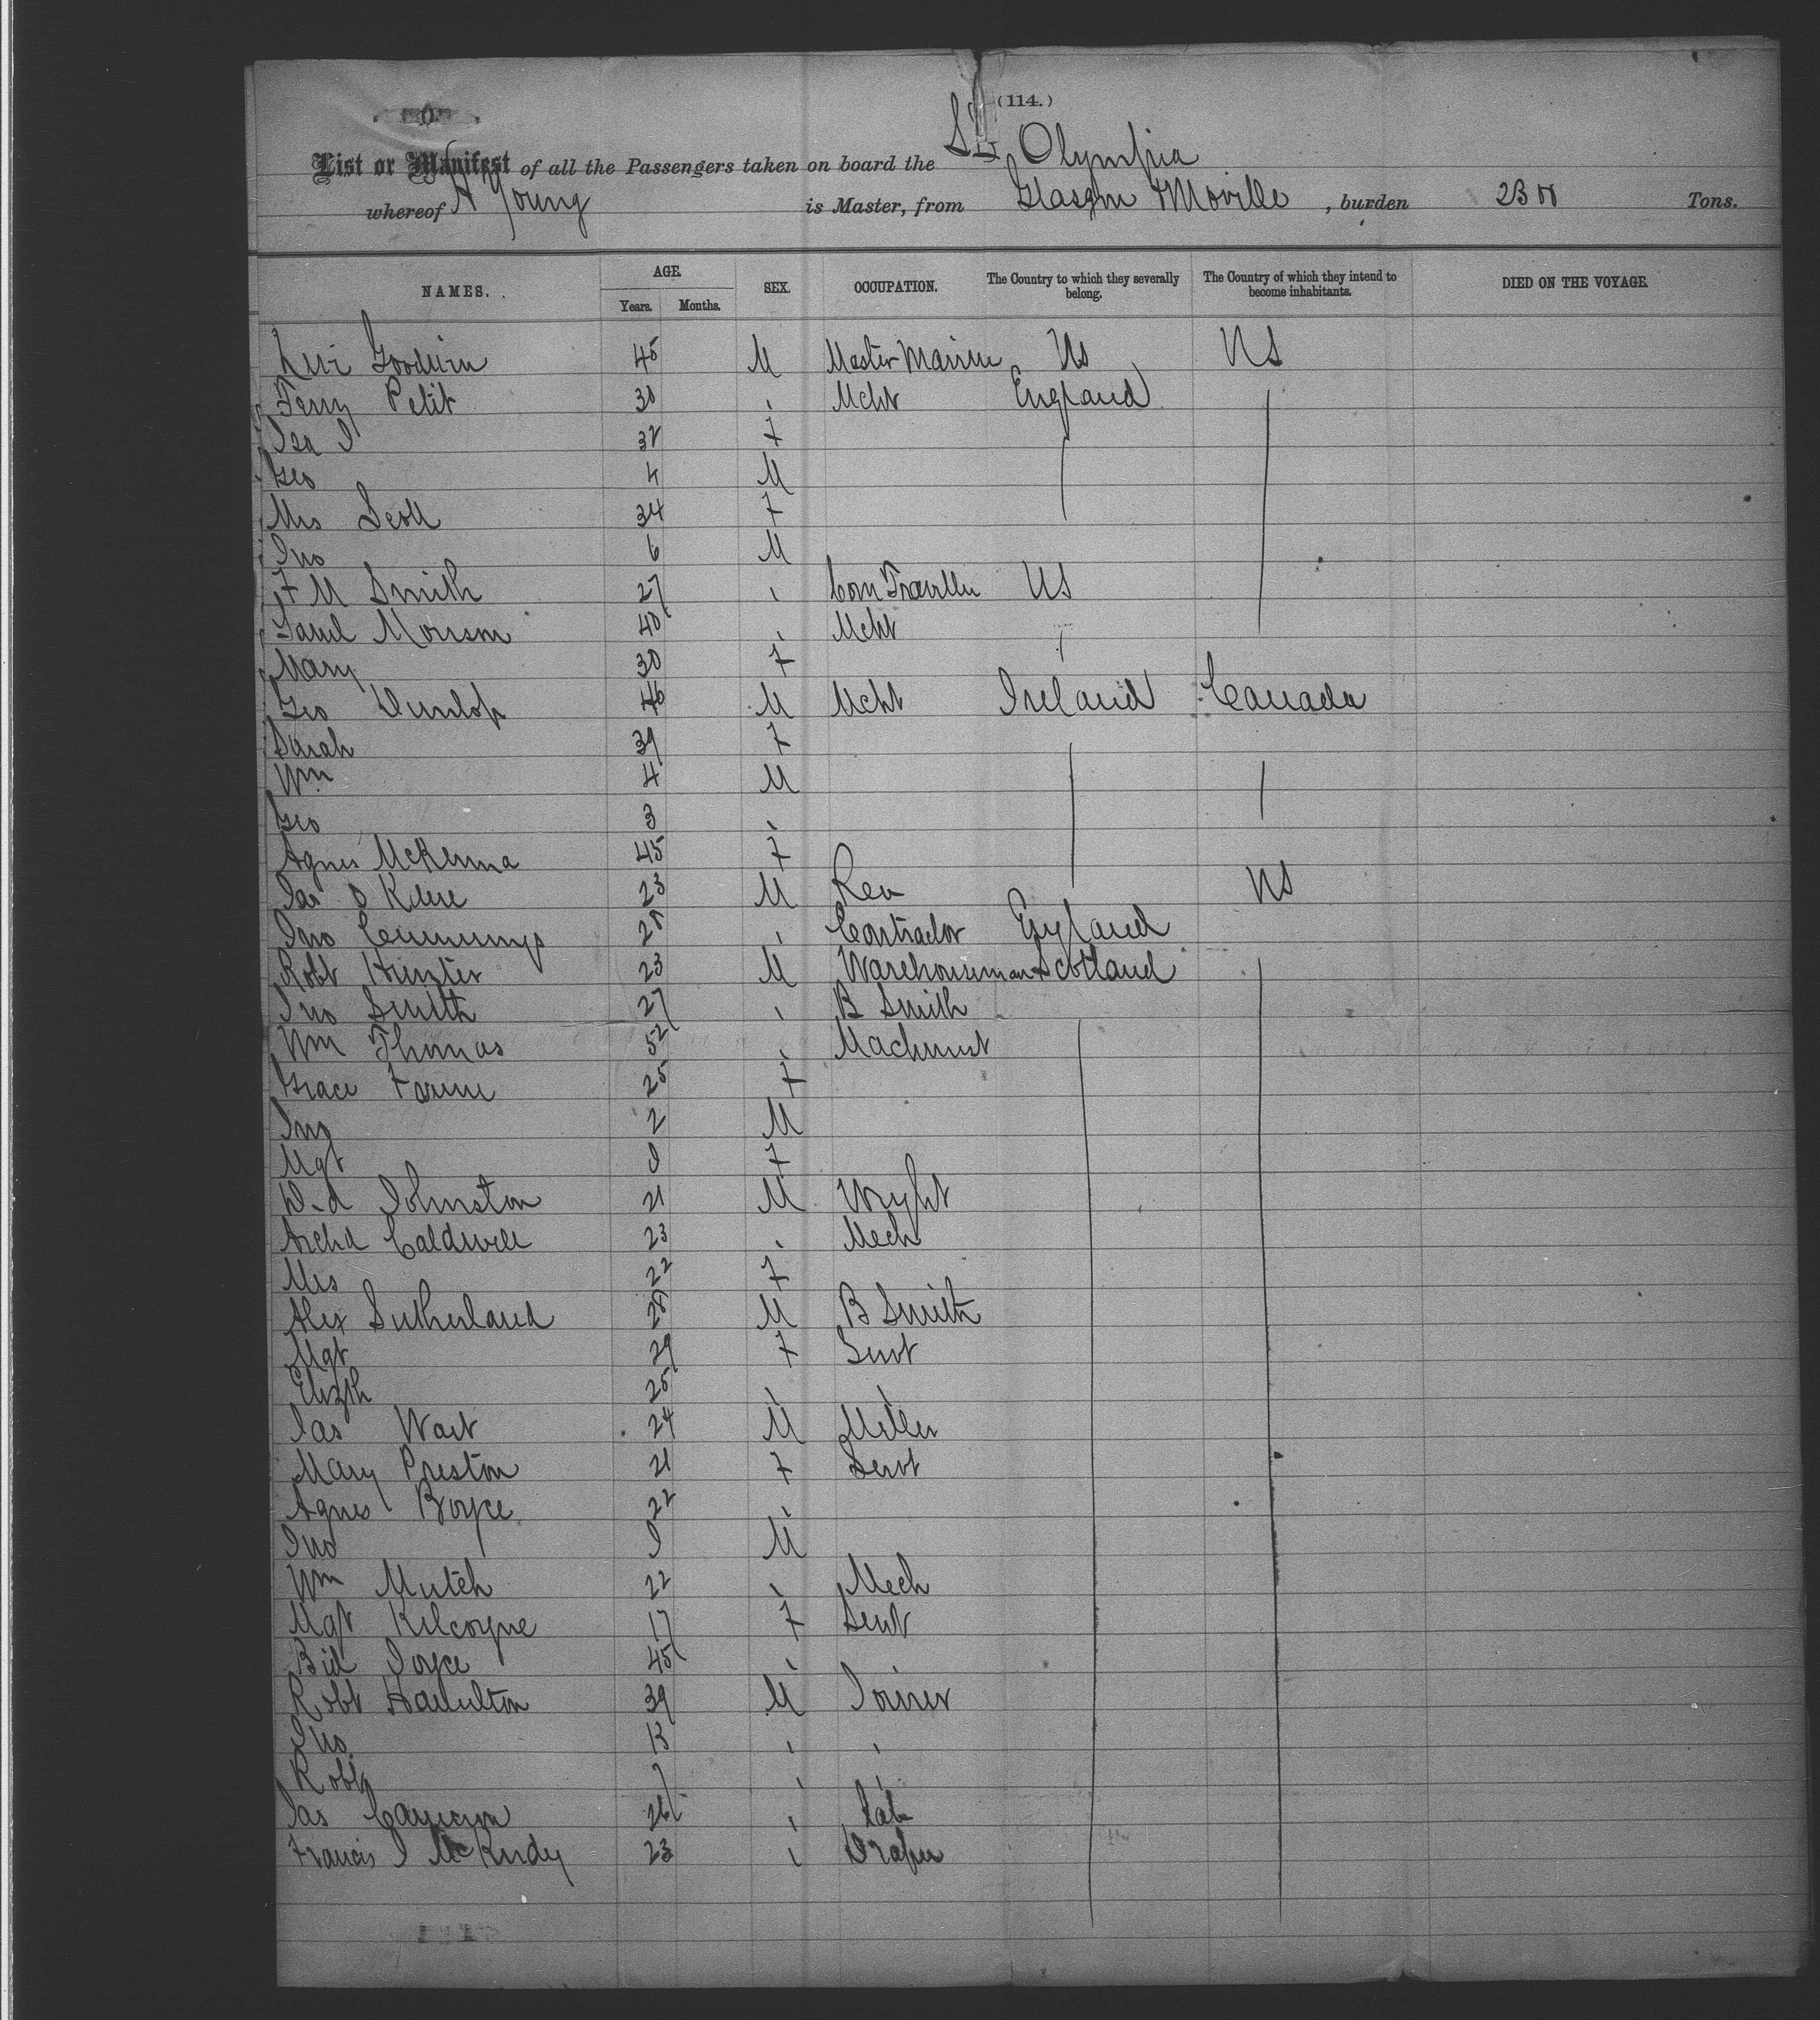 (114.)
List or Manifest of all the Passengers taken on board the SS Olympia
whereof A Young is Master, from Glasgow & Moville, burden Tons.
NAMES. AGE. SEX. OCCUPATION. The Country to which they severally belong. The Country of which they intend to become inhabitants. DIED ON THE VOYAGE
Years. Months.
Levi Goodwin 45 M Master Marine US US
Petit 30 " Mcht England
Isa J 32 F
Geo 4 M
Mrs Scott 34 F
Jno 6 M
F M Smith 27 " Com Traveller US
Saml Morison 40 " Mcht
Mary 30 F
Geo Dunlop 46 M Mcht Ireland Canada
Sarah 39 F
Wm 4 M
Geo 3 "
Agnes McKenna 45 F
Jas O 23 M Rev US
Jno Cummings 28 " Contractor England
Robt Hunter 23 M Warehouseman Scotland
Jno Smith 27 " B Smith
Wm Thomas 52 " Machinist
Grace 25 F
Jno 2 M
Mgt F
D-d Johnston 21 M Wright
Archd Caldwell 23 " Mech
Mrs 22 F
Alex Sutherland 28 M B Smith
Mgt 29 F Servt
Elizth 25 " "
Jas Watt 24 M Miller
Mary Preston 21 F Servt
Agnes Boyce 22 "
Jno M
Wm Mutch 22 " Mech
Mgt Kilcoyne 17 F Servt
Bid Joyce 45 "
Robt Hamilton 39 M Joiner
Jno 13 " "
Robt 7 " "
Jas Cameron 26 " Lab
Francis J 23 " Draper